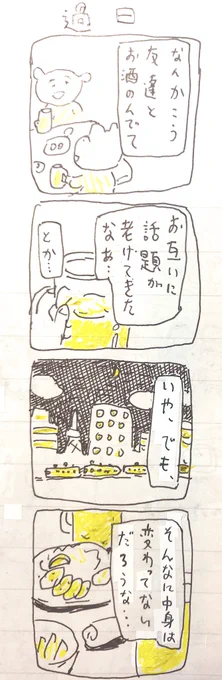 過日
なんかこう
友達と
お酒のんでて
お互いに
話題が
老けてきた
なあ…
とか…
いや、でも、
そんなに中身は
変わってない
だろうな…